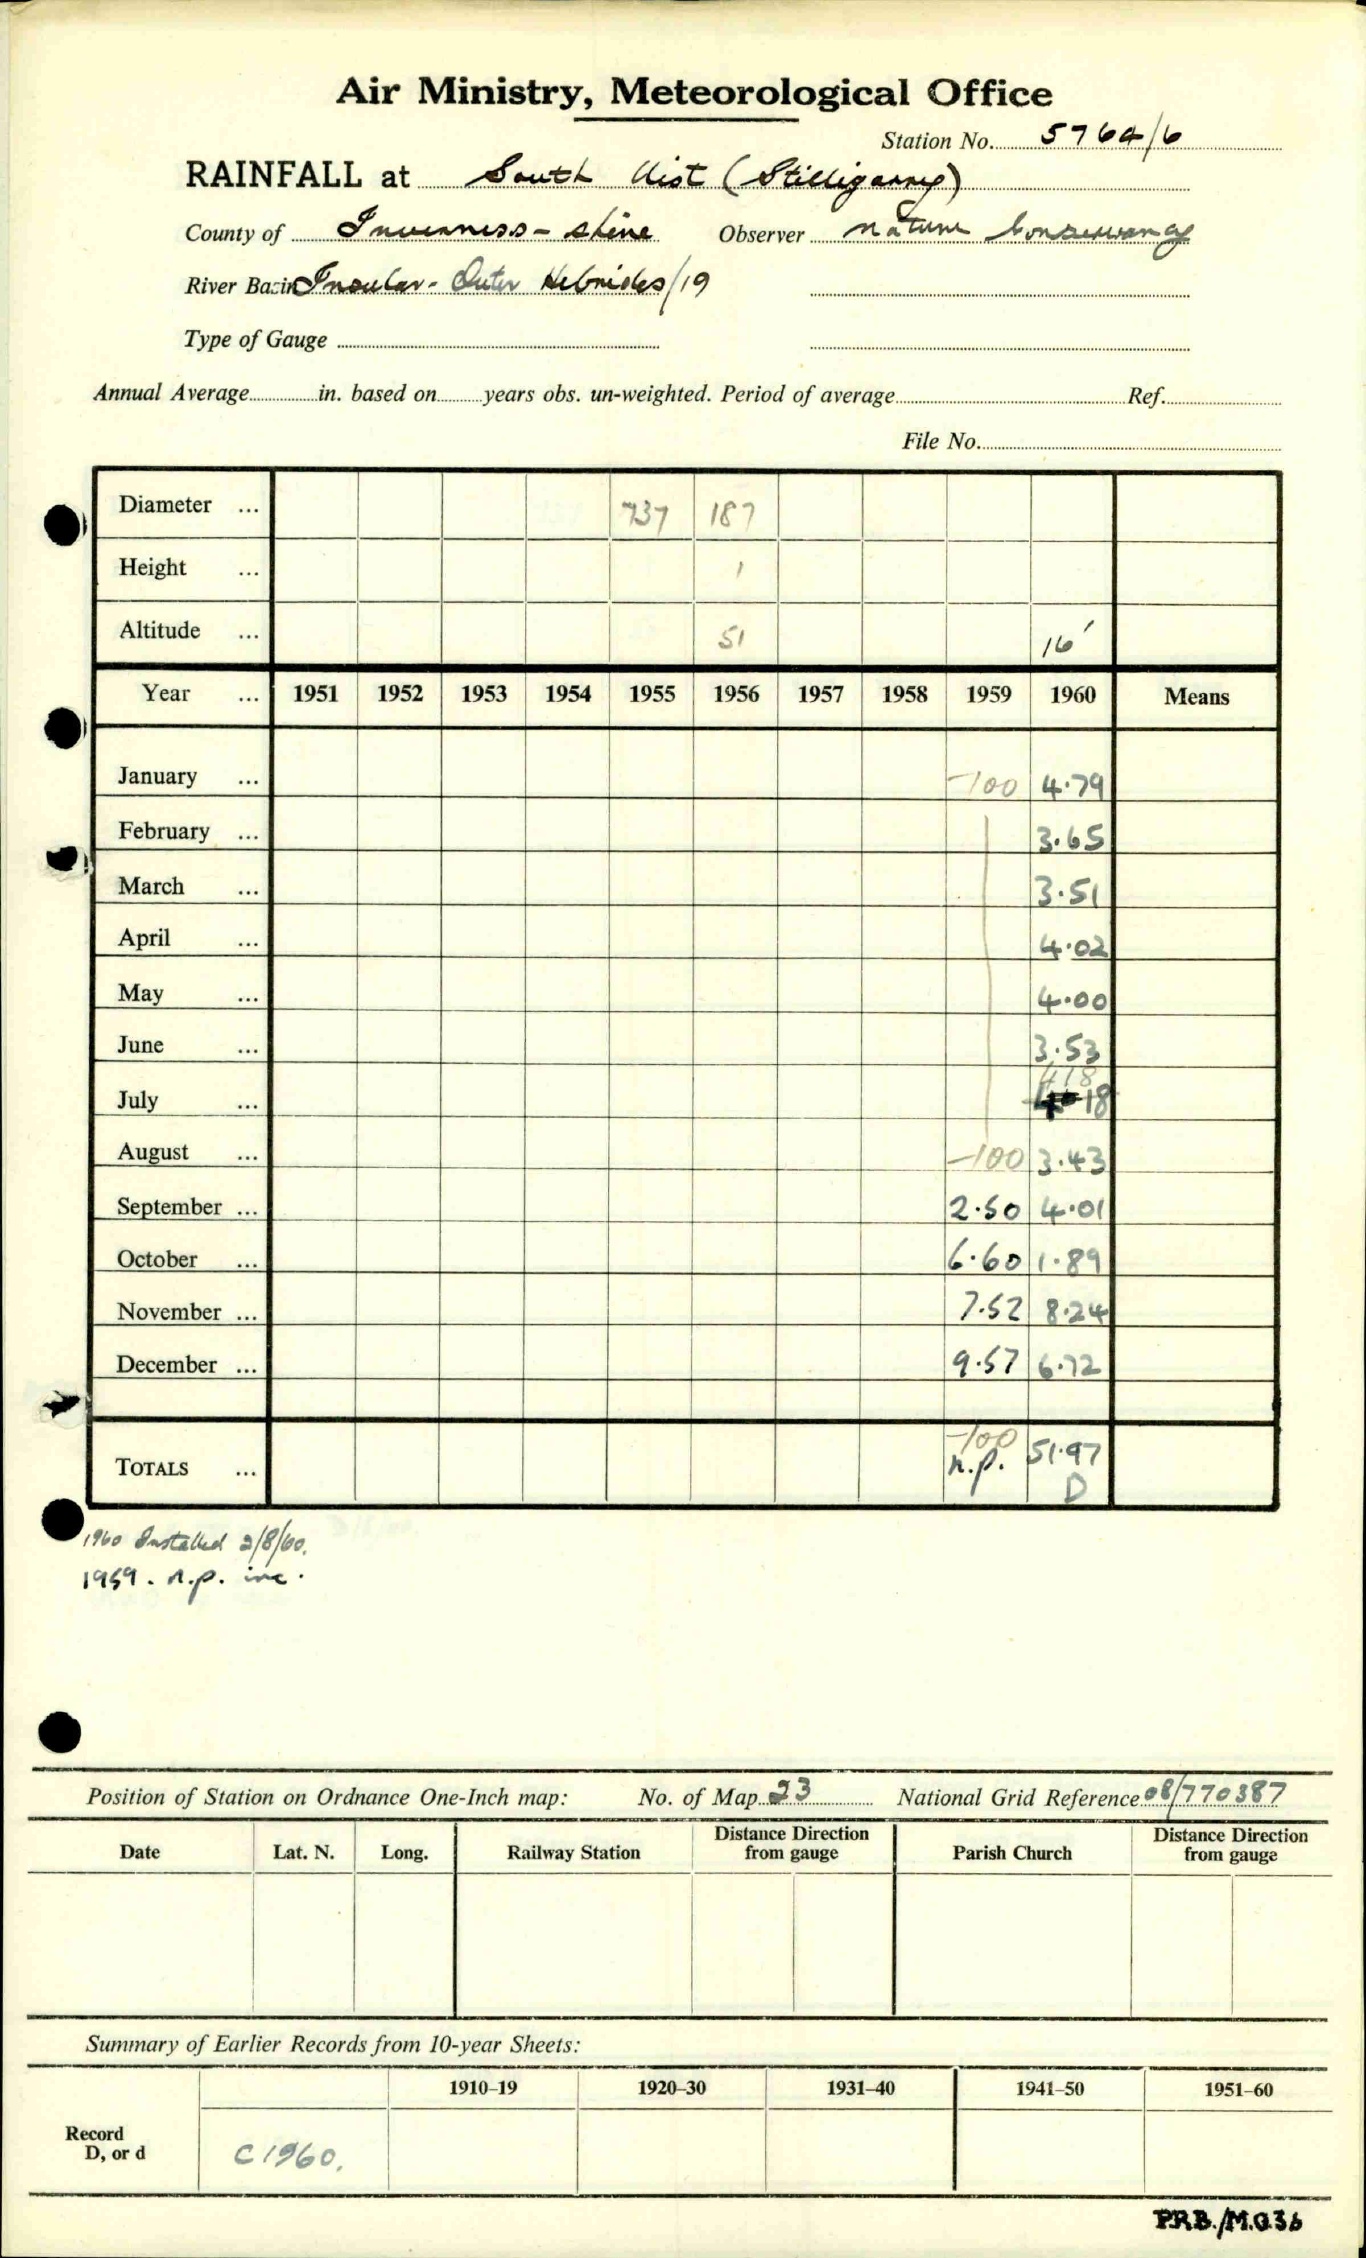 Air Ministry, Meteorological Office
Station No. 5764/6
RAINFALL at South Uist (Stilligarry)
County of Inverness-shire Observer Nature Conservancy
River Basin Insular - Outer Hebrides/19
Type of Gauge
Annual Average in. based on years obs. un-weighted. Period of average Ref.
File No.
Diameter ... 737 187
Height ... 1
Altitude ... 51 16'
Year ... 1951 1952 1953 1954 1955 1956 1957 1958 1959 1960 Means
January ... -100 4.79
February ... 3.65
March ... 3.51
April ... 4.02
May ... 4.00
June ... 3.53
418
July ... 4.18
August ... -100 3.43
September ... 2.50 4.01
October ... 6.60 1.89
November ... 7.52 8.24
December ... 9.57 6.72
-100
TOTALS ... n.p. 51.97
D
1960 Installed 2/8/60.
1959. n.p. inc.
Position of Station on Ordnance One-Inch map: No. of Map 23 National Grid Reference 08/770387
Date Lat. N. Long. Railway Station Distance Direction from gauge Parish Church Distance Direction from gauge
Summary of Earlier Records from 10-year Sheets:
1910-19 1920-30 1931-40 1941-50 1951-60
Record
D, or d C1960.
P.R.B./M.O.36